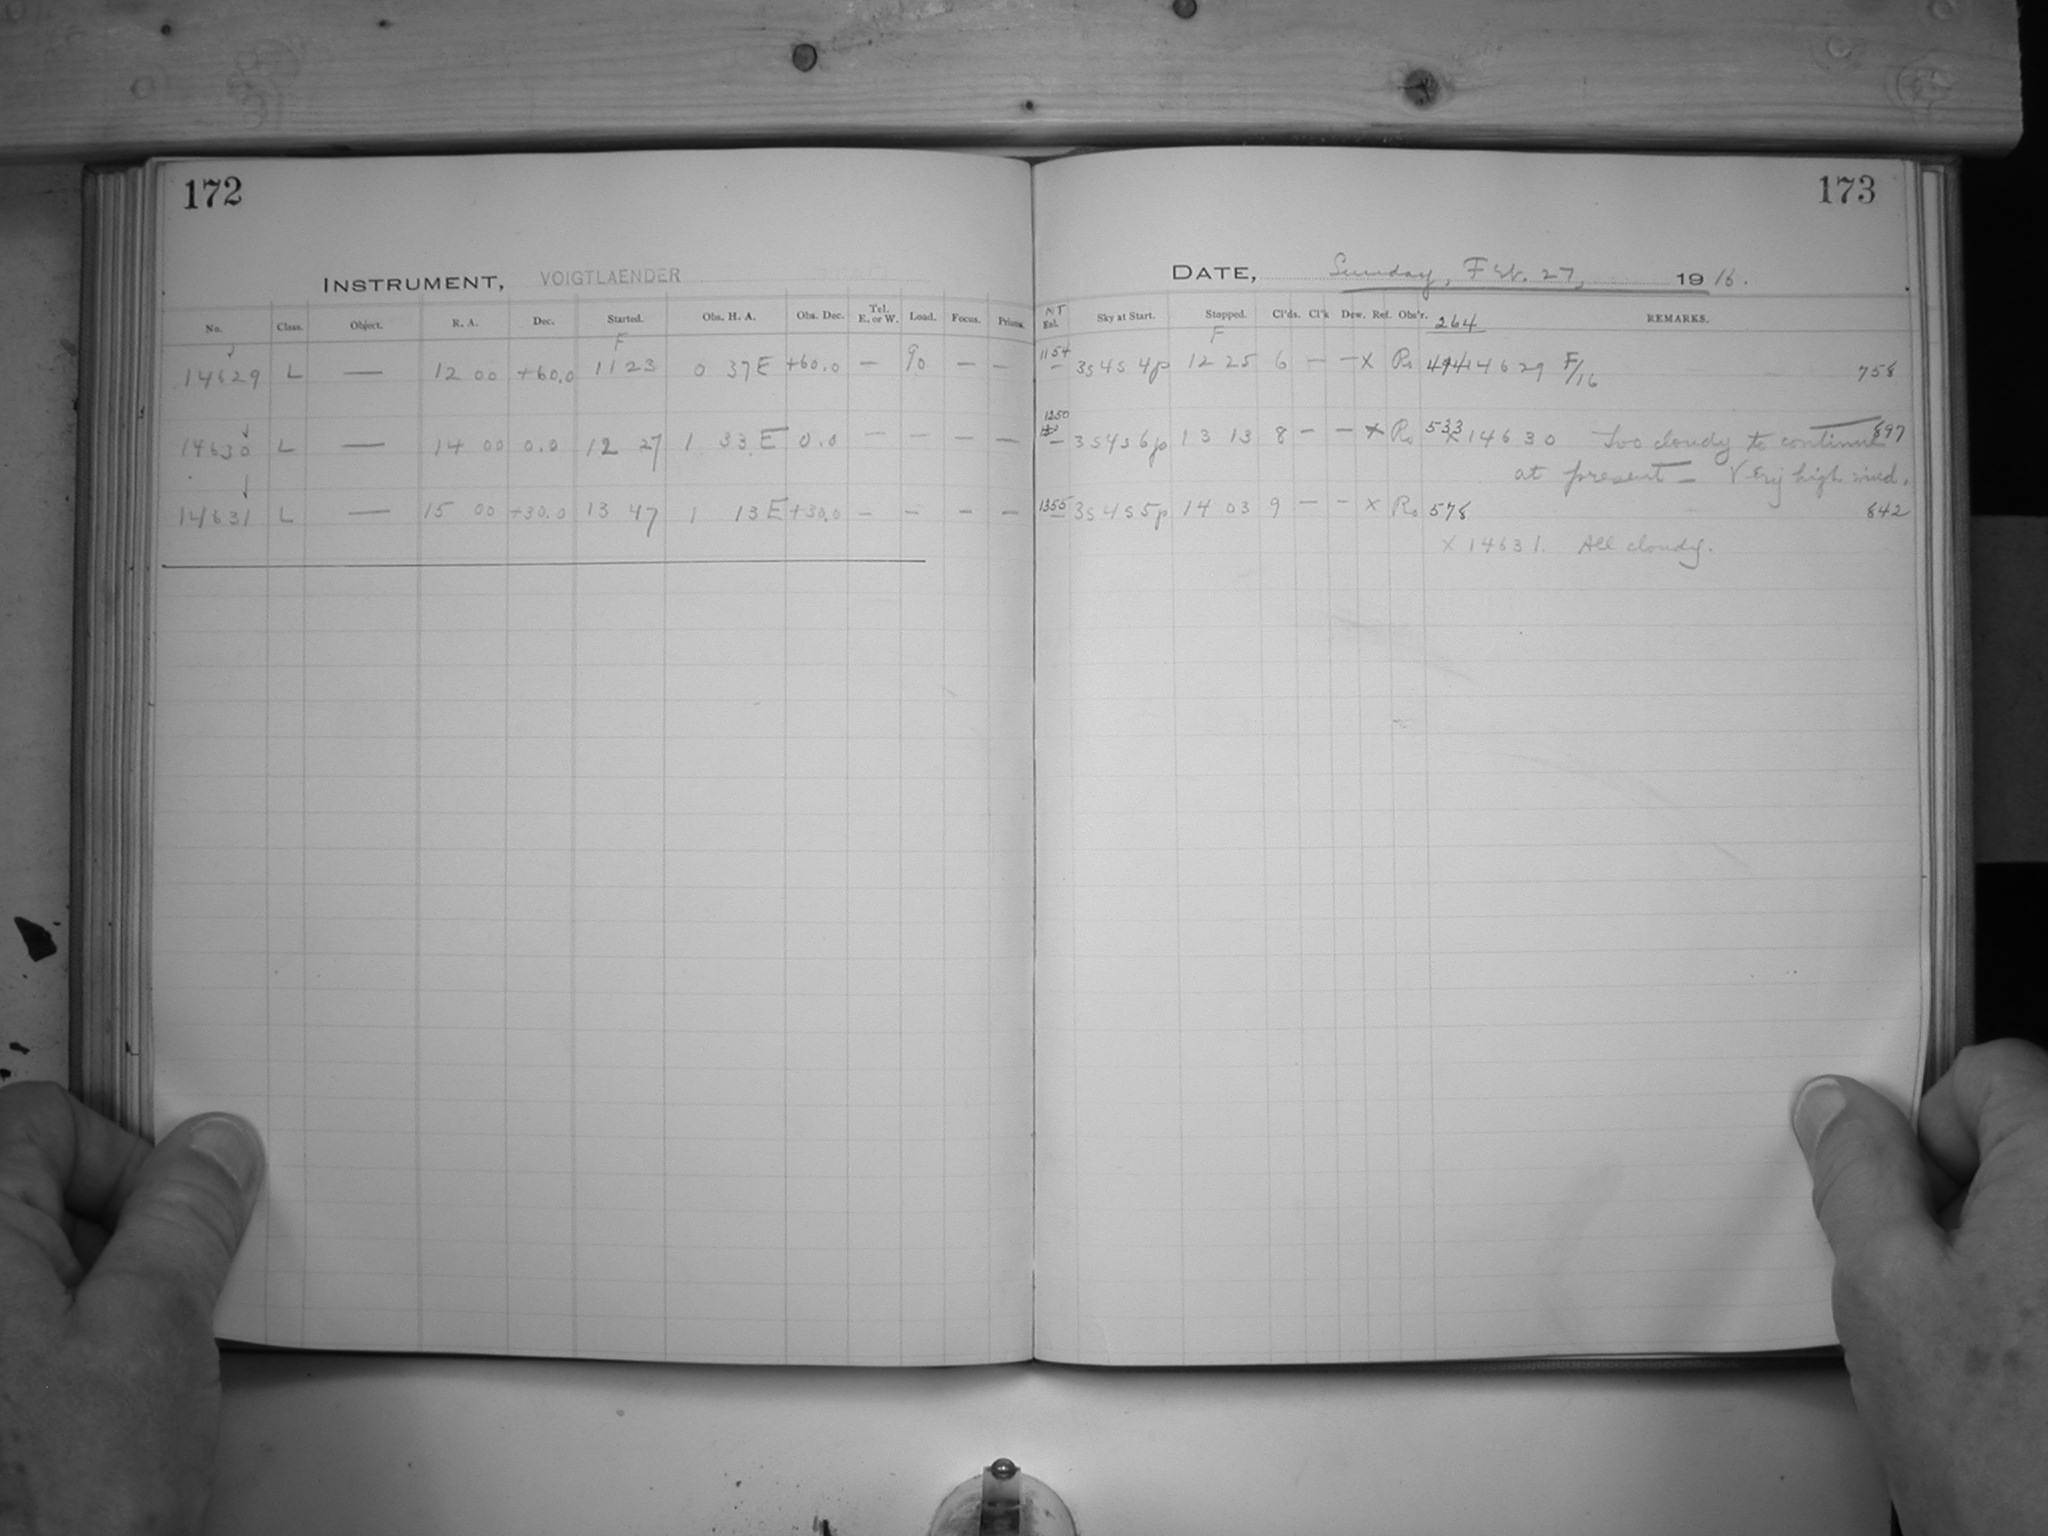 172
173
INSTRUMENT, VOIGTLAENDER
DATE, Sunday, Feb. 27, 1916.
No. Class. Object. R. A. Dec. Started. Obs. H. A. Obs. Dec. Tel. E. or W. Load. Focus. Prisms.
NT Exl. Sky at Start. Stopped. Cl'ds. Cl'k Dew. Ref. Obs'r. 264 REMARKS.
F
F
14629 L — 12 00 +60.0 11 23 0 37 E +60.0 — 90 — —
1154 — 3s 4s 4p 12 25 6 — — x Ro 494 14629 F/16 758
14630 L — 14 00 0.0 12 27 1 33 E 0.0 — — — —
1250 — 3s 4s 6p 13 13 8 — — x Ro 533 x 14630 Too cloudy to continue 897
at present — Very high wind.
14631 L — 15 00 +30.0 13 47 1 13 E +30.0 — — — —
1355 — 3s 4s 5p 14 03 9 — — x Ro 578 842
x 14631. All cloudy.